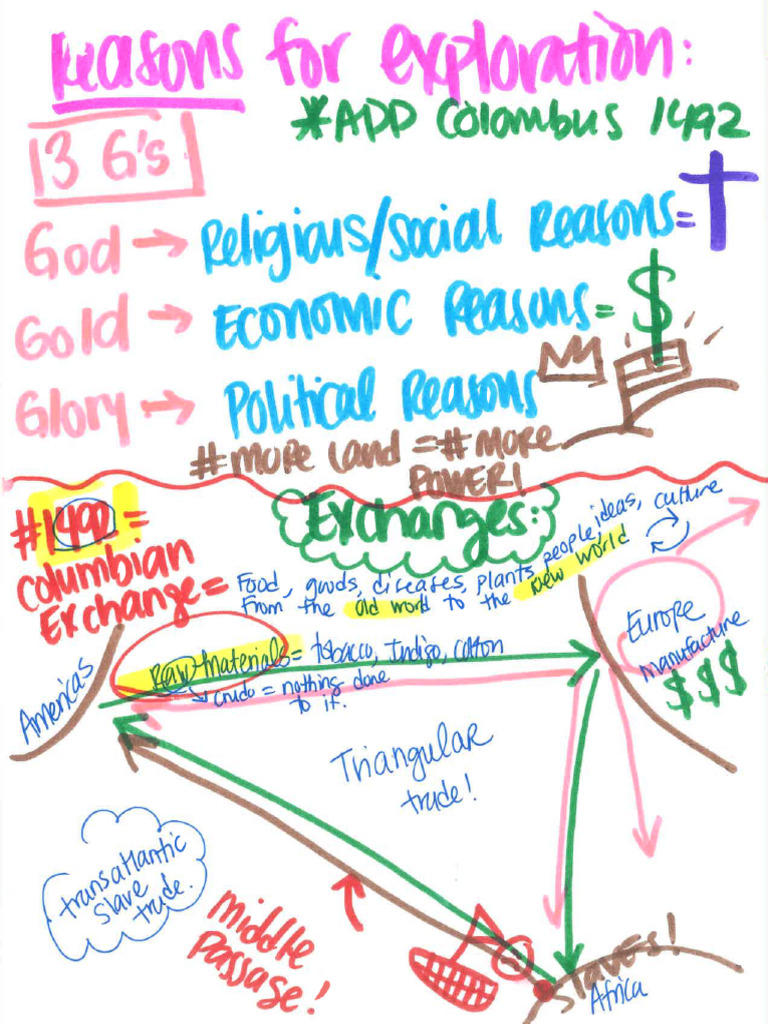 Reasons for exploration:
*ADD Colombus 1492
3 G's
God → Religious/Social Reasons =
Gold → Economic Reasons = $
Glory → Political Reasons
#more land = #more
power!
#1492 =
Columbian
Exchange =
Exchanges:
Food, goods, diseases, plants, people, ideas, culture
From the old world to the new world
Americas
raw materials = tobacco, Indigo, cotton
↳ crudo = nothing done
to it.
Europe
manufacture
$$$
Triangular
trade!
transatlantic
slave
trade.
middle
passage!
slaves!
Africa